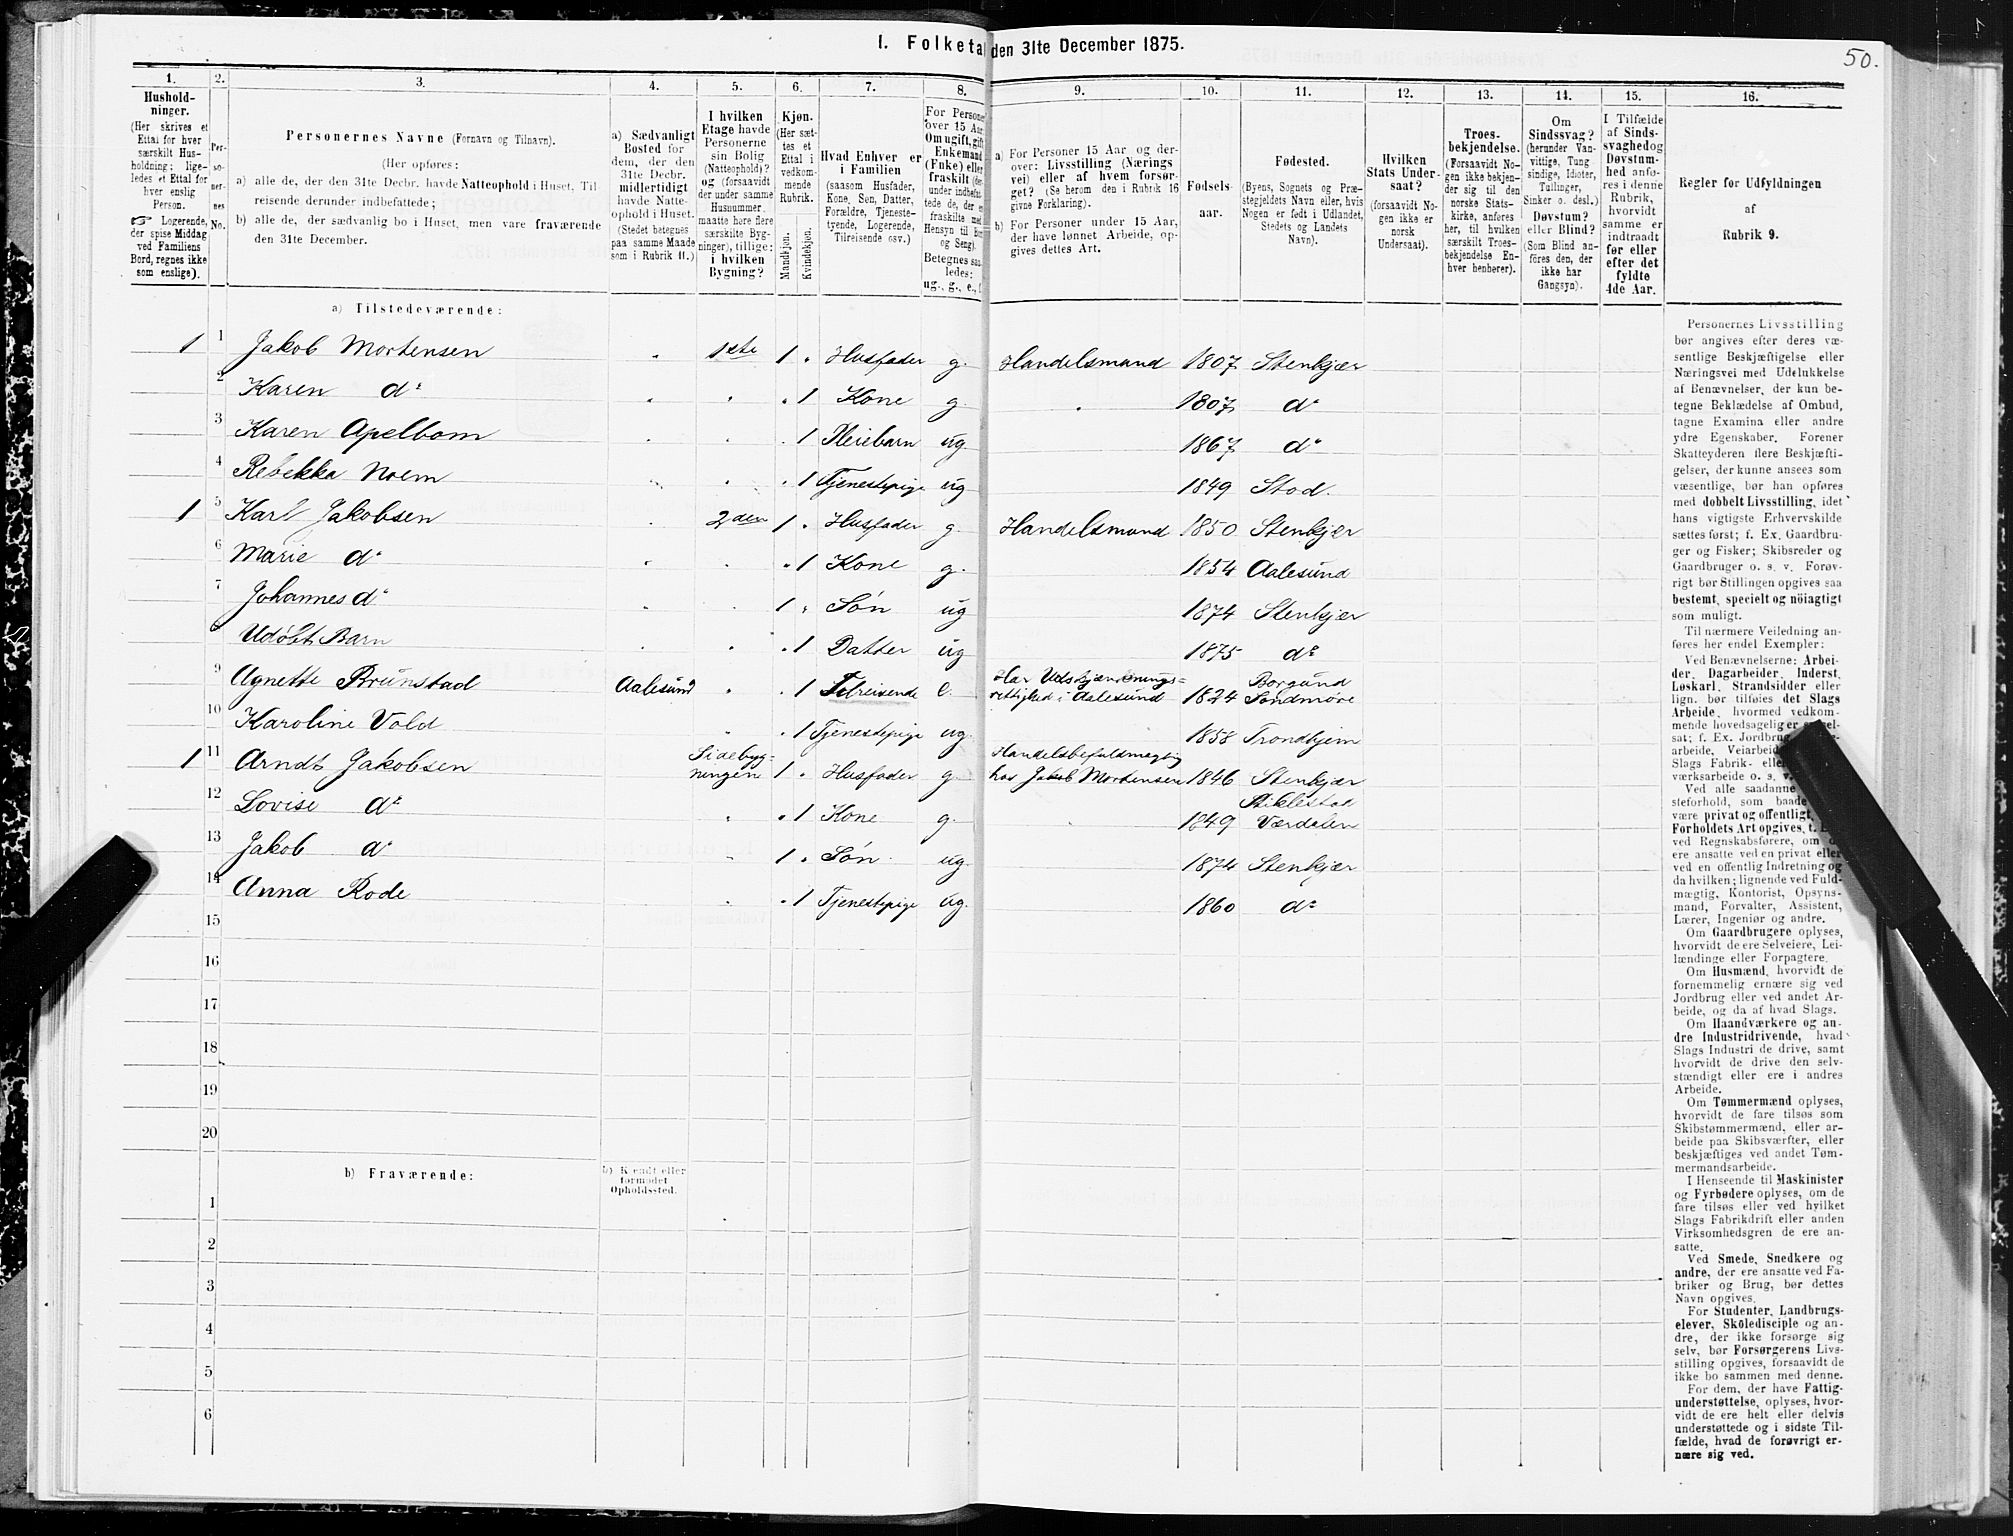 I. Folketal den 31te December 1875.
50.
1. 2. 3. 4. 5. 6. 7. 8. 9. 10. 11. 12. 13. 14. 15. 16.
Hushold-
ninger.
(Her skrives et
Ettal for hver
særskilt Hus-
holdning; lige-
ledes et Ettal for
hver enslig
Person.
☞ Logerende,
der spise Middag
ved Familiens
Bord, regnes ikke
som enslige).
Per-
so-
ner-
nes
No.
Personernes Navne (Fornavn og Tilnavn).
(Her opføres:
a) alle de, der den 31te Decbr. havde Natteophold i Huset, Til-
reisende derunder indbefattede;
b) alle de, der sædvanlig bo i Huset, men vare fraværende
den 31te December.
a) Sædvanligt
Bosted for
dem, der den
31te Decbr.
midlertidigt
havde Natte-
ophold i Huset.
(Stedet betegnes
paa samme Maade
som i Rubrik 11.)
I hvilken
Etage havde
Personerne
sin Bolig
(Natteophold)?
og (forsaavidt
der under samme
Husnummer
maatte høre flere
særskilte Byg-
ninger), tillige:
i hvilken
Bygning?
Kjøn.
(Her sæt-
tes et
Ettal i
vedkom-
mende
Rubrik.
Mandkjøn.
Kvindekjøn.
Hvad Enhver er
i Familien
(saasom Husfader,
Kone, Søn, Datter,
Forældre, Tjeneste-
tyende, Logerende,
Tilreisende osv.)
For Personer
over 15 Aar
Om ugift, gift
Enkemand
(Fnke) eller
fraskilt (der-
under indbefat-
tede de, der er
fraskilte med
Hensyn til Bord
og Seng).
Betegnes saa-
ledes:
ug., g., e., f.
a) For Personer 15 Aar og der-
over: Livsstilling (Nærings
vei) eller af hvem forsør-
get? (Se herom den i Rubrik 16
givne Forklaring).
b) For Personer under 15 Aar,
der have lønnet Arbeide, op-
gives dettes Art.
Fødsels-
aar.
Fødested.
(Byens, Sognets og Præ-
stegjeldets Navn eller, hvis
Nogen er født i Udlandet,
Stedets og Landets
Navn).
Hvilken
Stats Under-
saat?
(forsaavidt No-
gen ikke er
norsk
Undersaat).
Troes-
bekjendelse.
(Forsaavidt No-
gen ikke bekjen-
der sig til den
norske Stats-
kirke, anføres
her, til hvilken
særskilt Troes-
bekjendelse En-
hver henhører).
Om
Sindssvag?
(herunder Van-
vittige, Tung
sindige, Idioter,
Tullinger,
Sinker o. desl.)
Døvstum?
eller Blind?
(Som Blind an-
føres den, der
ikke har
Gangsyn).
I Tilfælde
af Sinds-
svaghed og
Døvstum-
hed anfø-
res i denne
Rubrik,
hvorvidt
samme er
indtraadt
før eller
efter det
fyldte
4de Aar.
Regler for Udfyldningen
af
Rubrik 9.
a) Tilstedeværende:
1 1 Jakob Mortensen 1ste 1 Husfader g. Handelsmand 1807 Stenkjær
2 Karen do 1 Kone g. 1807 do
3 Karen Apelbom 1 Pleiebarn ug 1867 do
4 Rebekka Noem 1 Tjenestepige ug 1849 Stod.
1 5 Karl Jakobsen 2den 1 Husfader g. Handelsmand 1850 Stenkjær
6 Marie do 1 Kone g. 1854 Aalesund
7 Johannes do 1 Søn ug 1874 Stenkjær
Udøbt Barn 1 Datter ug 1875 do
9 Agnette Brunstad Aalesund 1 Tilreisende e. Har Udskjænknings-
rettighed i Aalesund 1824 Borgund
Søndmøre
10 Karoline Vold 1 Tjenestepige ug. 1858 Trondhjem
1 11 Arndt Jakobsen Sidebyg-
ningen 1 Husfader g. Handelsbefuldmægtig
hos Jakob Mortensen 1846 Stenkjær
12 Lovise do 1 Kone g. 1849 Stiklestad
Værdalen
13 Jakob do 1 Søn ug. 1874 Stenkjær
14 Anna Rode 1 Tjenestepige ug. 1860 do
15
16
17
18
19
20
b) Fraværende:
b) Kjendt eller
formodet
Opholdssted.
1
2
3
4
5
6
Personernes Livsstilling
bør angives efter deres væ-
sentlige Beskjæftigelse eller
Næringsvei med Udelukkelse
af Benævnelser, der kun be-
tegne Beklædelse af Ombud,
tagne Examina eller andre
ydre Egenskaber. Forener
Skatteyderen flere Beskjæfti-
gelser, der kunne ansees som
væsentlige, bør han opføres
med dobbelt Livsstilling, idet
hans vigtigste Erhvervskilde
sættes først; f. Ex. Gaardbru-
ger og Fisker; Skibsreder og
Gaardbruger o. s. v. Forøv-
rigt bør Stillingen opgives saa
bestemt, specielt og nöiagtigt
som muligt.
Til nærmere Veiledning an-
føres her endel Exempler:
Ved Benævnelserne: Arbei-
der, Dagarbeider, Inderst,
Løskarl, Strandsidder eller
lign. bør tilføies det Slags
Arbeide, hvormed vedkom-
mende hovedsagelig er syssel-
sat; f. Ex. Jordbrug
arbeide, Veiarbeid
Slags Fabrik- elle
værksarbeide o. s. v.
Ved alle saadanne
steforhold, som baade
være privat og offentligt,
Forholdets Art opgives, t. Ex.
ved Regnskabsførere, om de
ere ansatte ved en privat eller
ved en offentlig Indretning og
da hvilken; lignende ved Fuld-
mægtig, Kontorist, Opsyns-
mand, Forvalter, Assistent,
Lærer, Ingeniør og andre.
Om Gaardbrugere oplyses,
hvorvidt de ere Selveiere, Lei-
lændinge eller Forpagtere.
Om Husmænd, hvorvidt de
fornemmelig ernære sig ved
Jordbrug eller ved andet Ar-
beide, og da af hvad Slags.
Om Haandværkere og an-
dre Industridrivende, hvad
Slags Industri de drive, samt
hvorvidt de drive den selv-
stændigt eller ere i andres
Arbeide.
Om Tømmermænd oplyses,
hvorvidt de fare tilsøs som
Skibstømmermænd, eller ar-
beide paa Skibsværfter, eller
beskjæftiges ved andet Tøm-
mermandsarbeide.
I Henseende til Maskinister
og Fyrbødere oplyses, om de
fare tilsøs eller ved hvilket
Slags Fabrikdrift eller anden
Virksomhedsgren de ere an-
satte.
Ved Smede, Snedkere og
andre, der ere ansatte ved Fa-
briker og Brug, bør dettes
Navn opgives.
For Studenter, Landbrugs-
elever, Skoledisciple og an-
dre, der ikke forsørge sig
selv, bør Forsørgerens Livs-
stilling opgives, forsaavidt de
ikke bo sammen med denne.
For dem, der have Fattig-
understøttelse, oplyses, hvor-
vidt de ere helt eller delvis
understøttede og i sidste Til-
fælde, hvad de forøvrigt er-
nære sig ved.